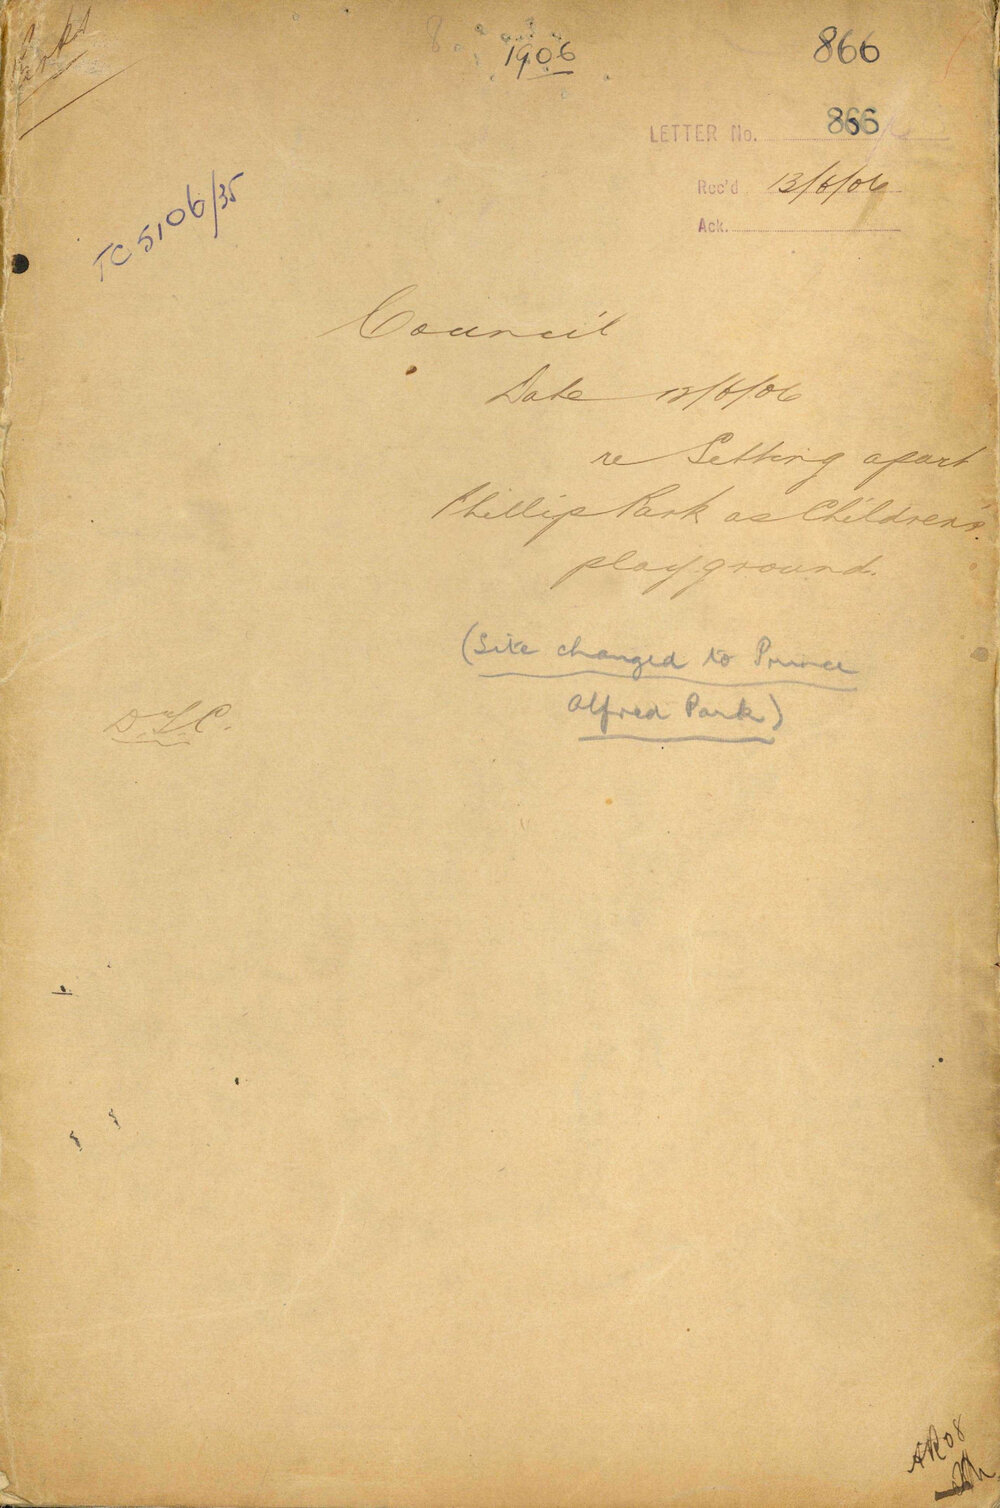 Parks
1906
866
LETTER No. 866
Rec'd 13/6/06
Ack.
TC 5106/35
Council
Date 12/6/06
re Setting apart
Phillip Park as Children's
playground.
(Site changed to Prince
Alfred Park)
AR08